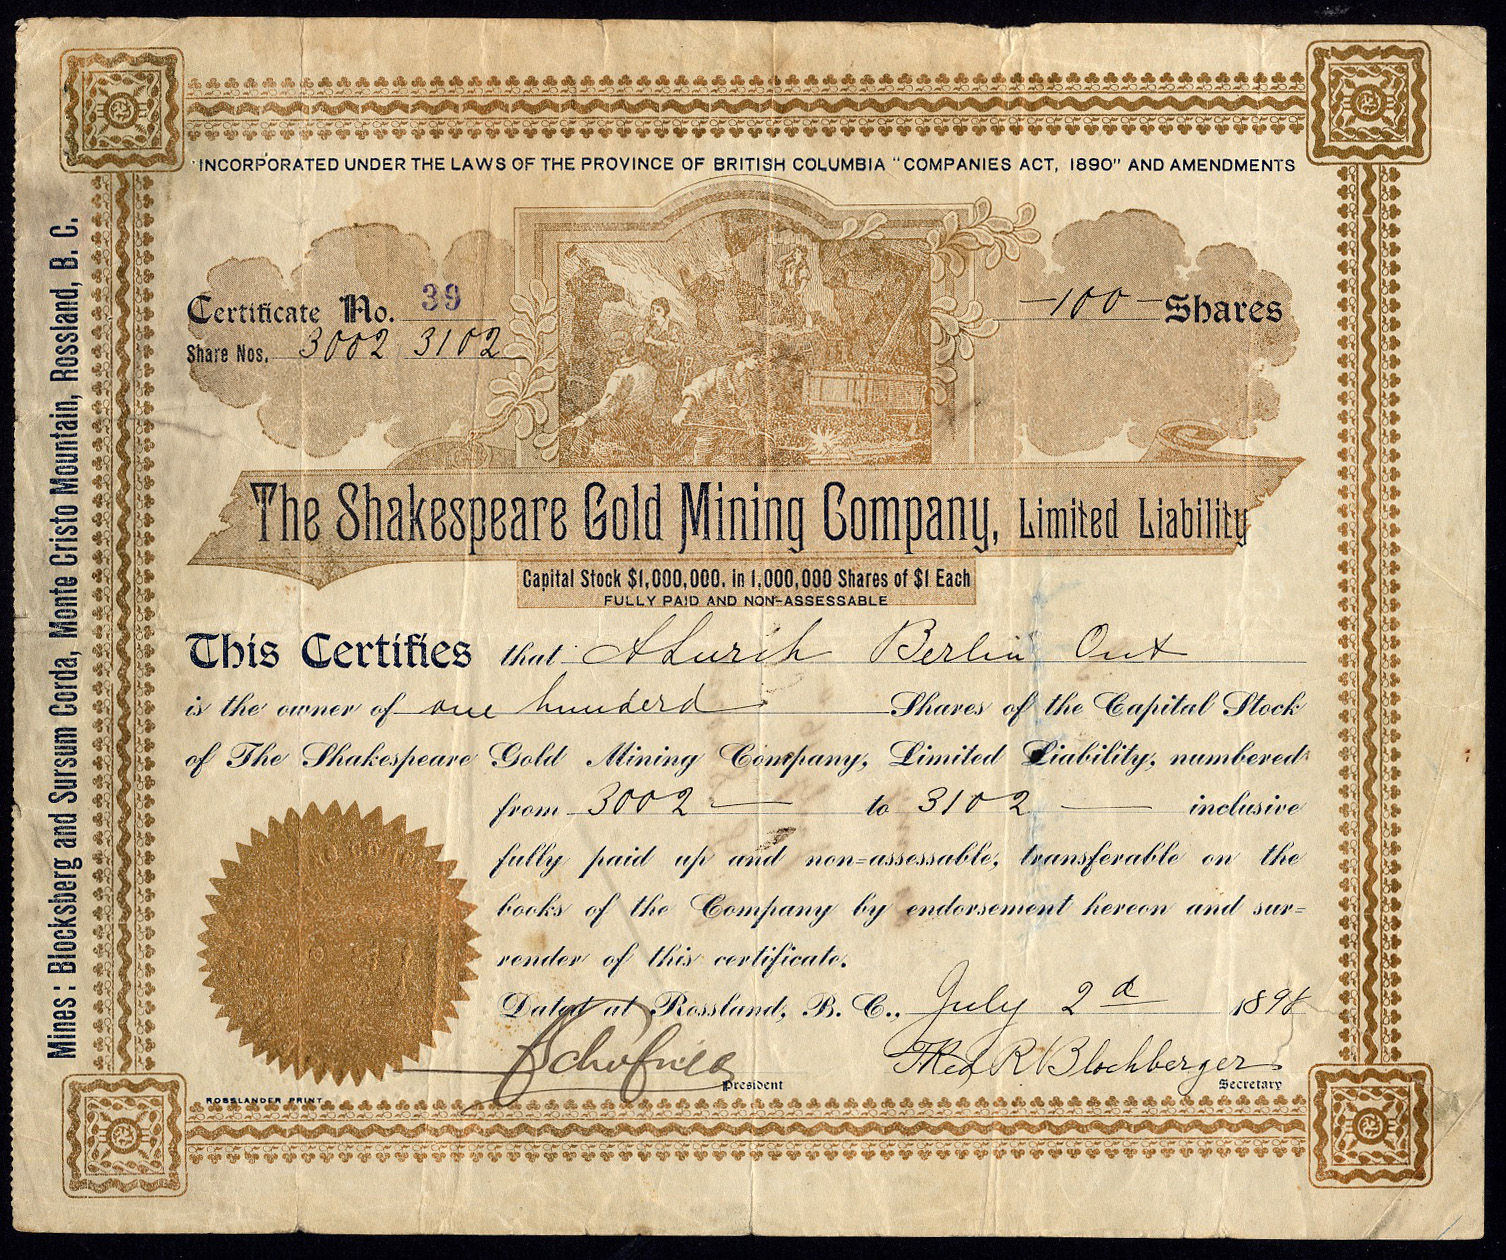 INCORPORATED UNDER THE LAWS OF THE PROVINCE OF BRITISH COLUMBIA "COMPANIES ACT, 1890" AND AMENDMENTS
Certificate No. 39
Share Nos. 3002 3102
—100— Shares
The Shakespeare Gold Mining Company, Limited Liability
Capital Stock $1,000,000. in 1,000,000 Shares of $1 Each
FULLY PAID AND NON-ASSESSABLE
This Certifies that Berlin Ont
is the owner of one hunderd Shares of the Capital Stock
of The Shakespeare Gold Mining Company, Limited Liability, numbered
from 3002 — to 3102 — inclusive
fully paid up and non=assessable, transferable on the
books of the Company by endorsement hereon and sur=
render of this certificate.
Dated at Rossland, B. C., July 2d 189
Schofield
President
Fred R Blochberger
Secretary
ROSSLANDER PRINT
Mines: Blocksberg and Sursum Corda, Monte Cristo Mountain, Rossland, B. C.